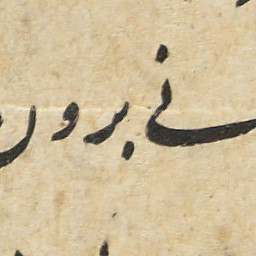 نی برون